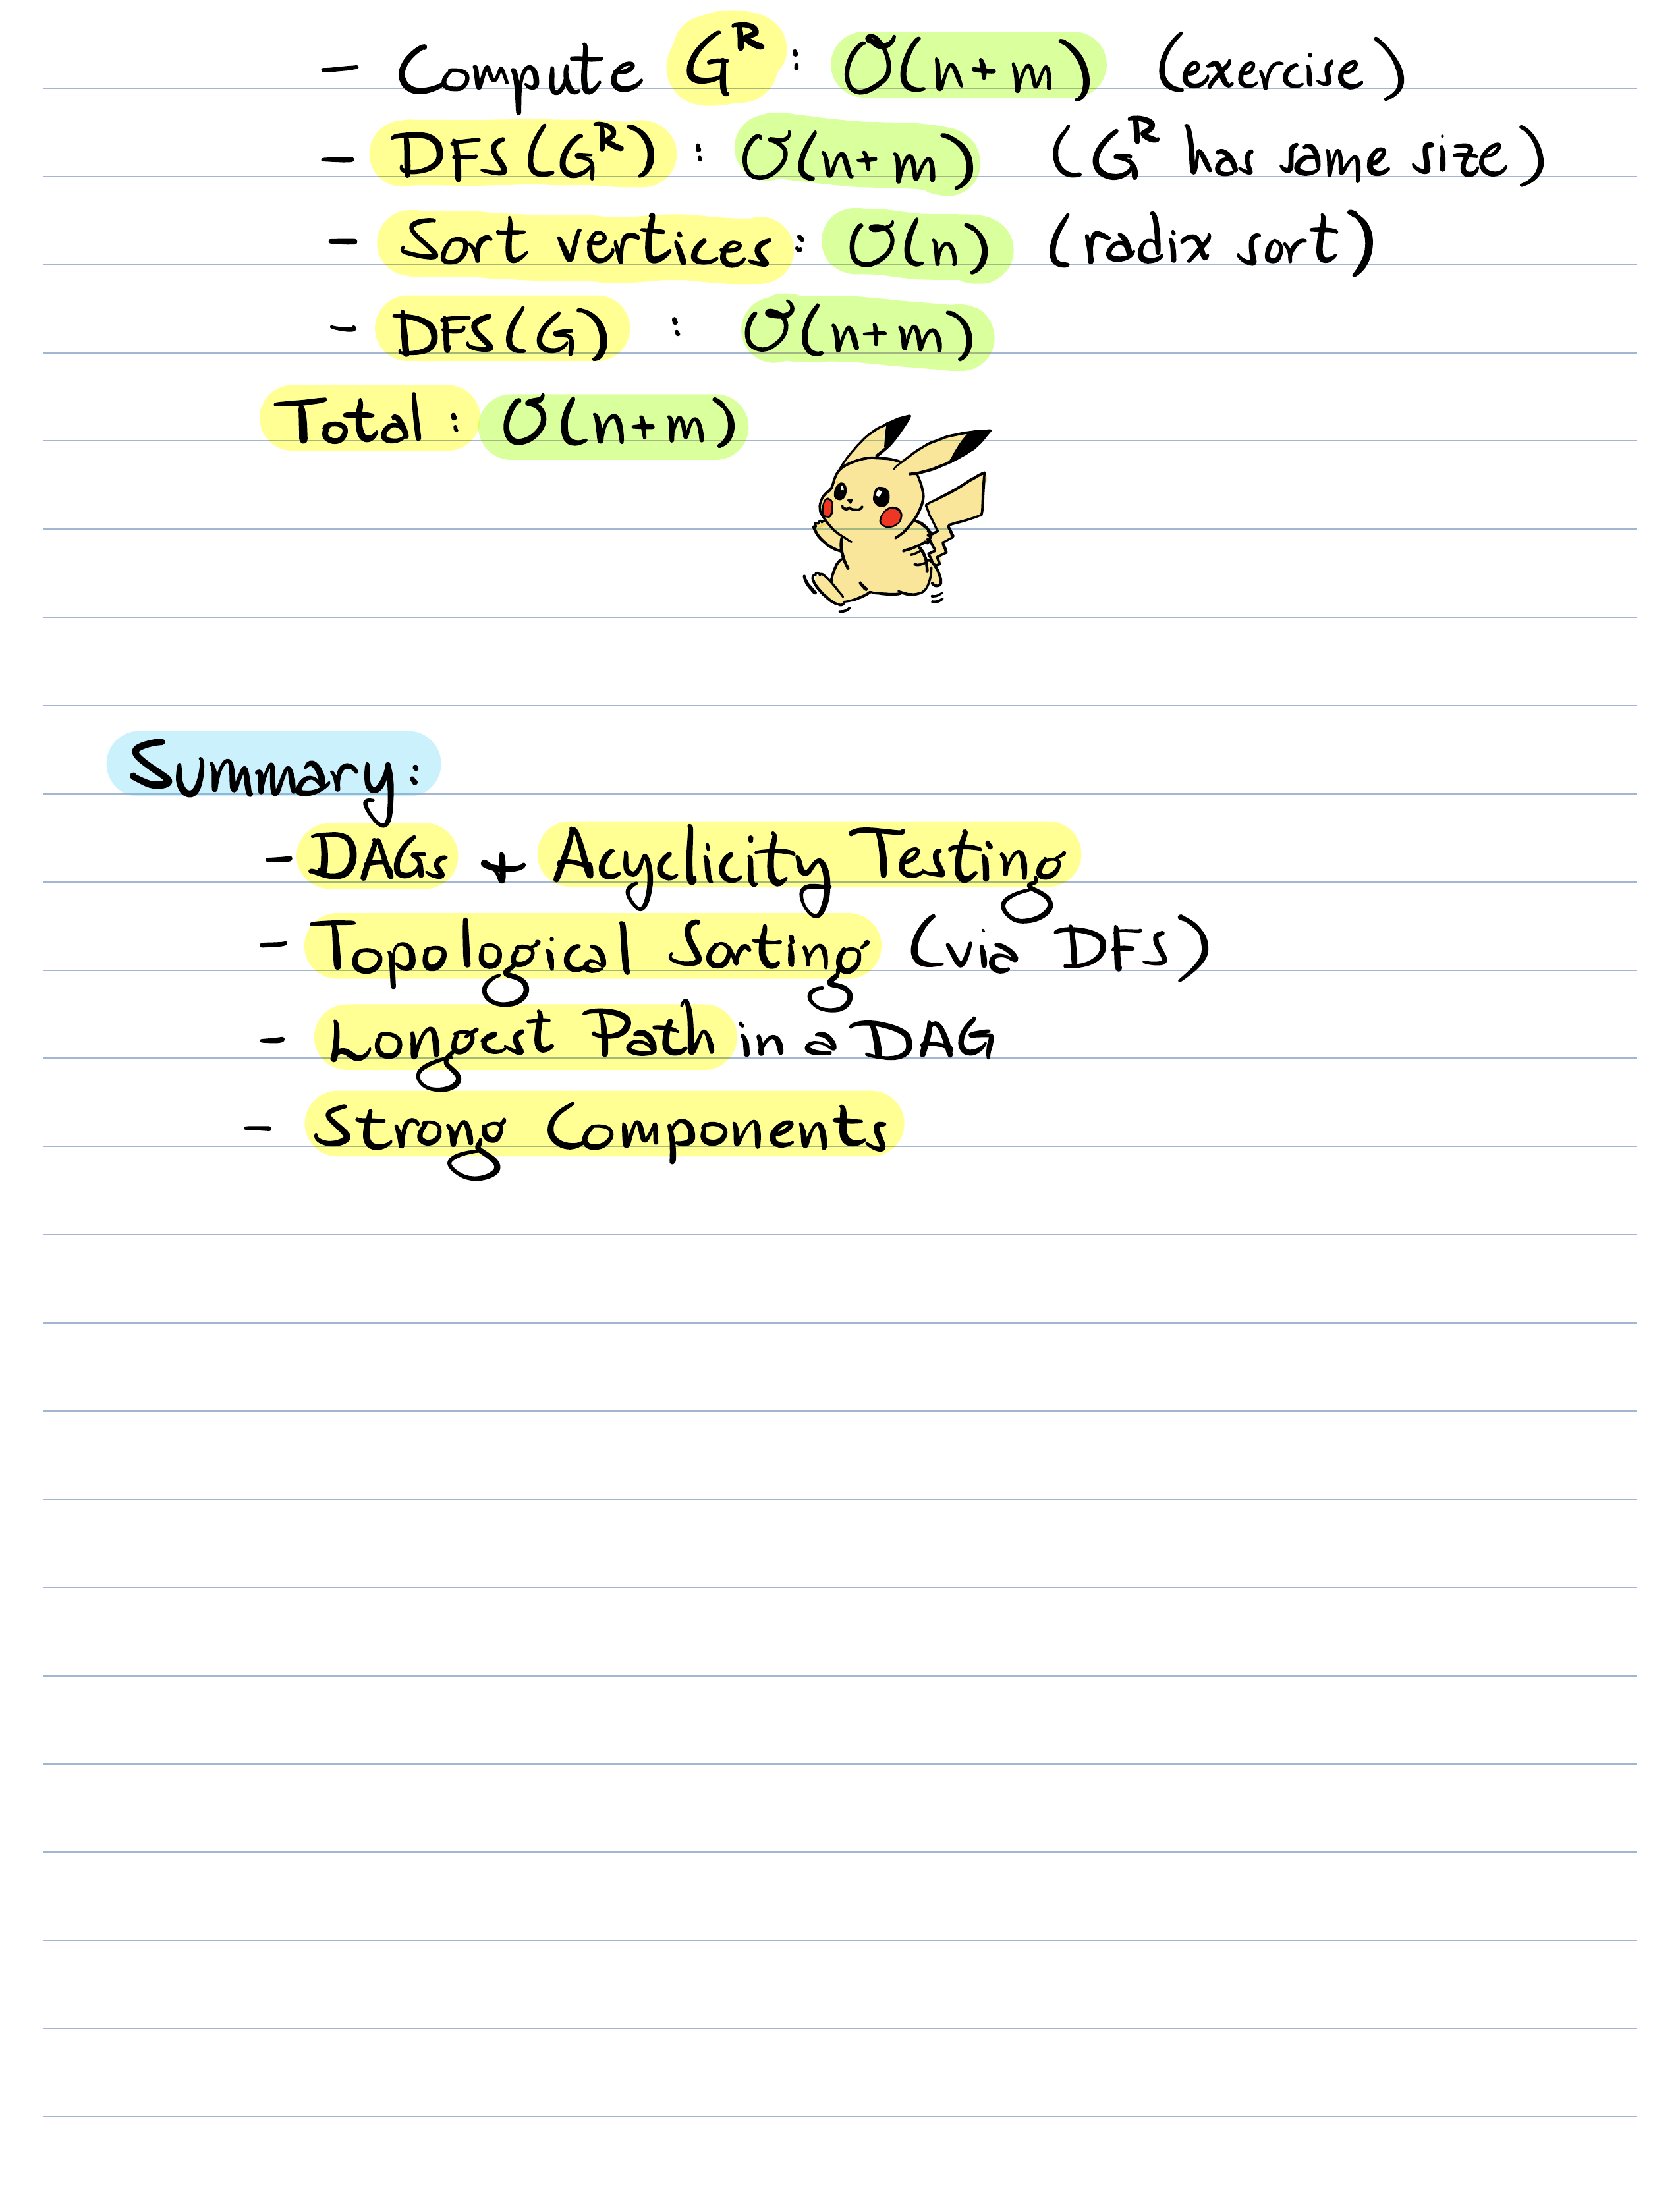 - Compute Gᴿ: O(n+m) (exercise)
- DFS(Gᴿ) : O(n+m) (Gᴿ has same size)
- Sort vertices: O(n) (radix sort)
- DFS(G) : O(n+m)
Total: O(n+m)
Summary:
- DAGs + Acyclicity Testing
- Topological Sorting (via DFS)
- Longest Path in a DAG
- Strong Components